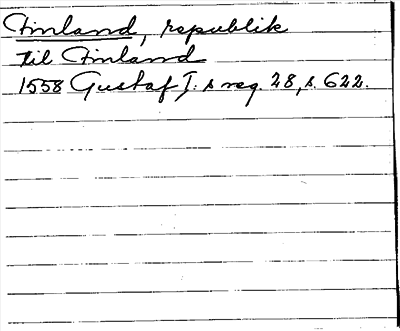 Finland, republik
til Finland
1558 Gustaf I:s reg. 28, s. 622.